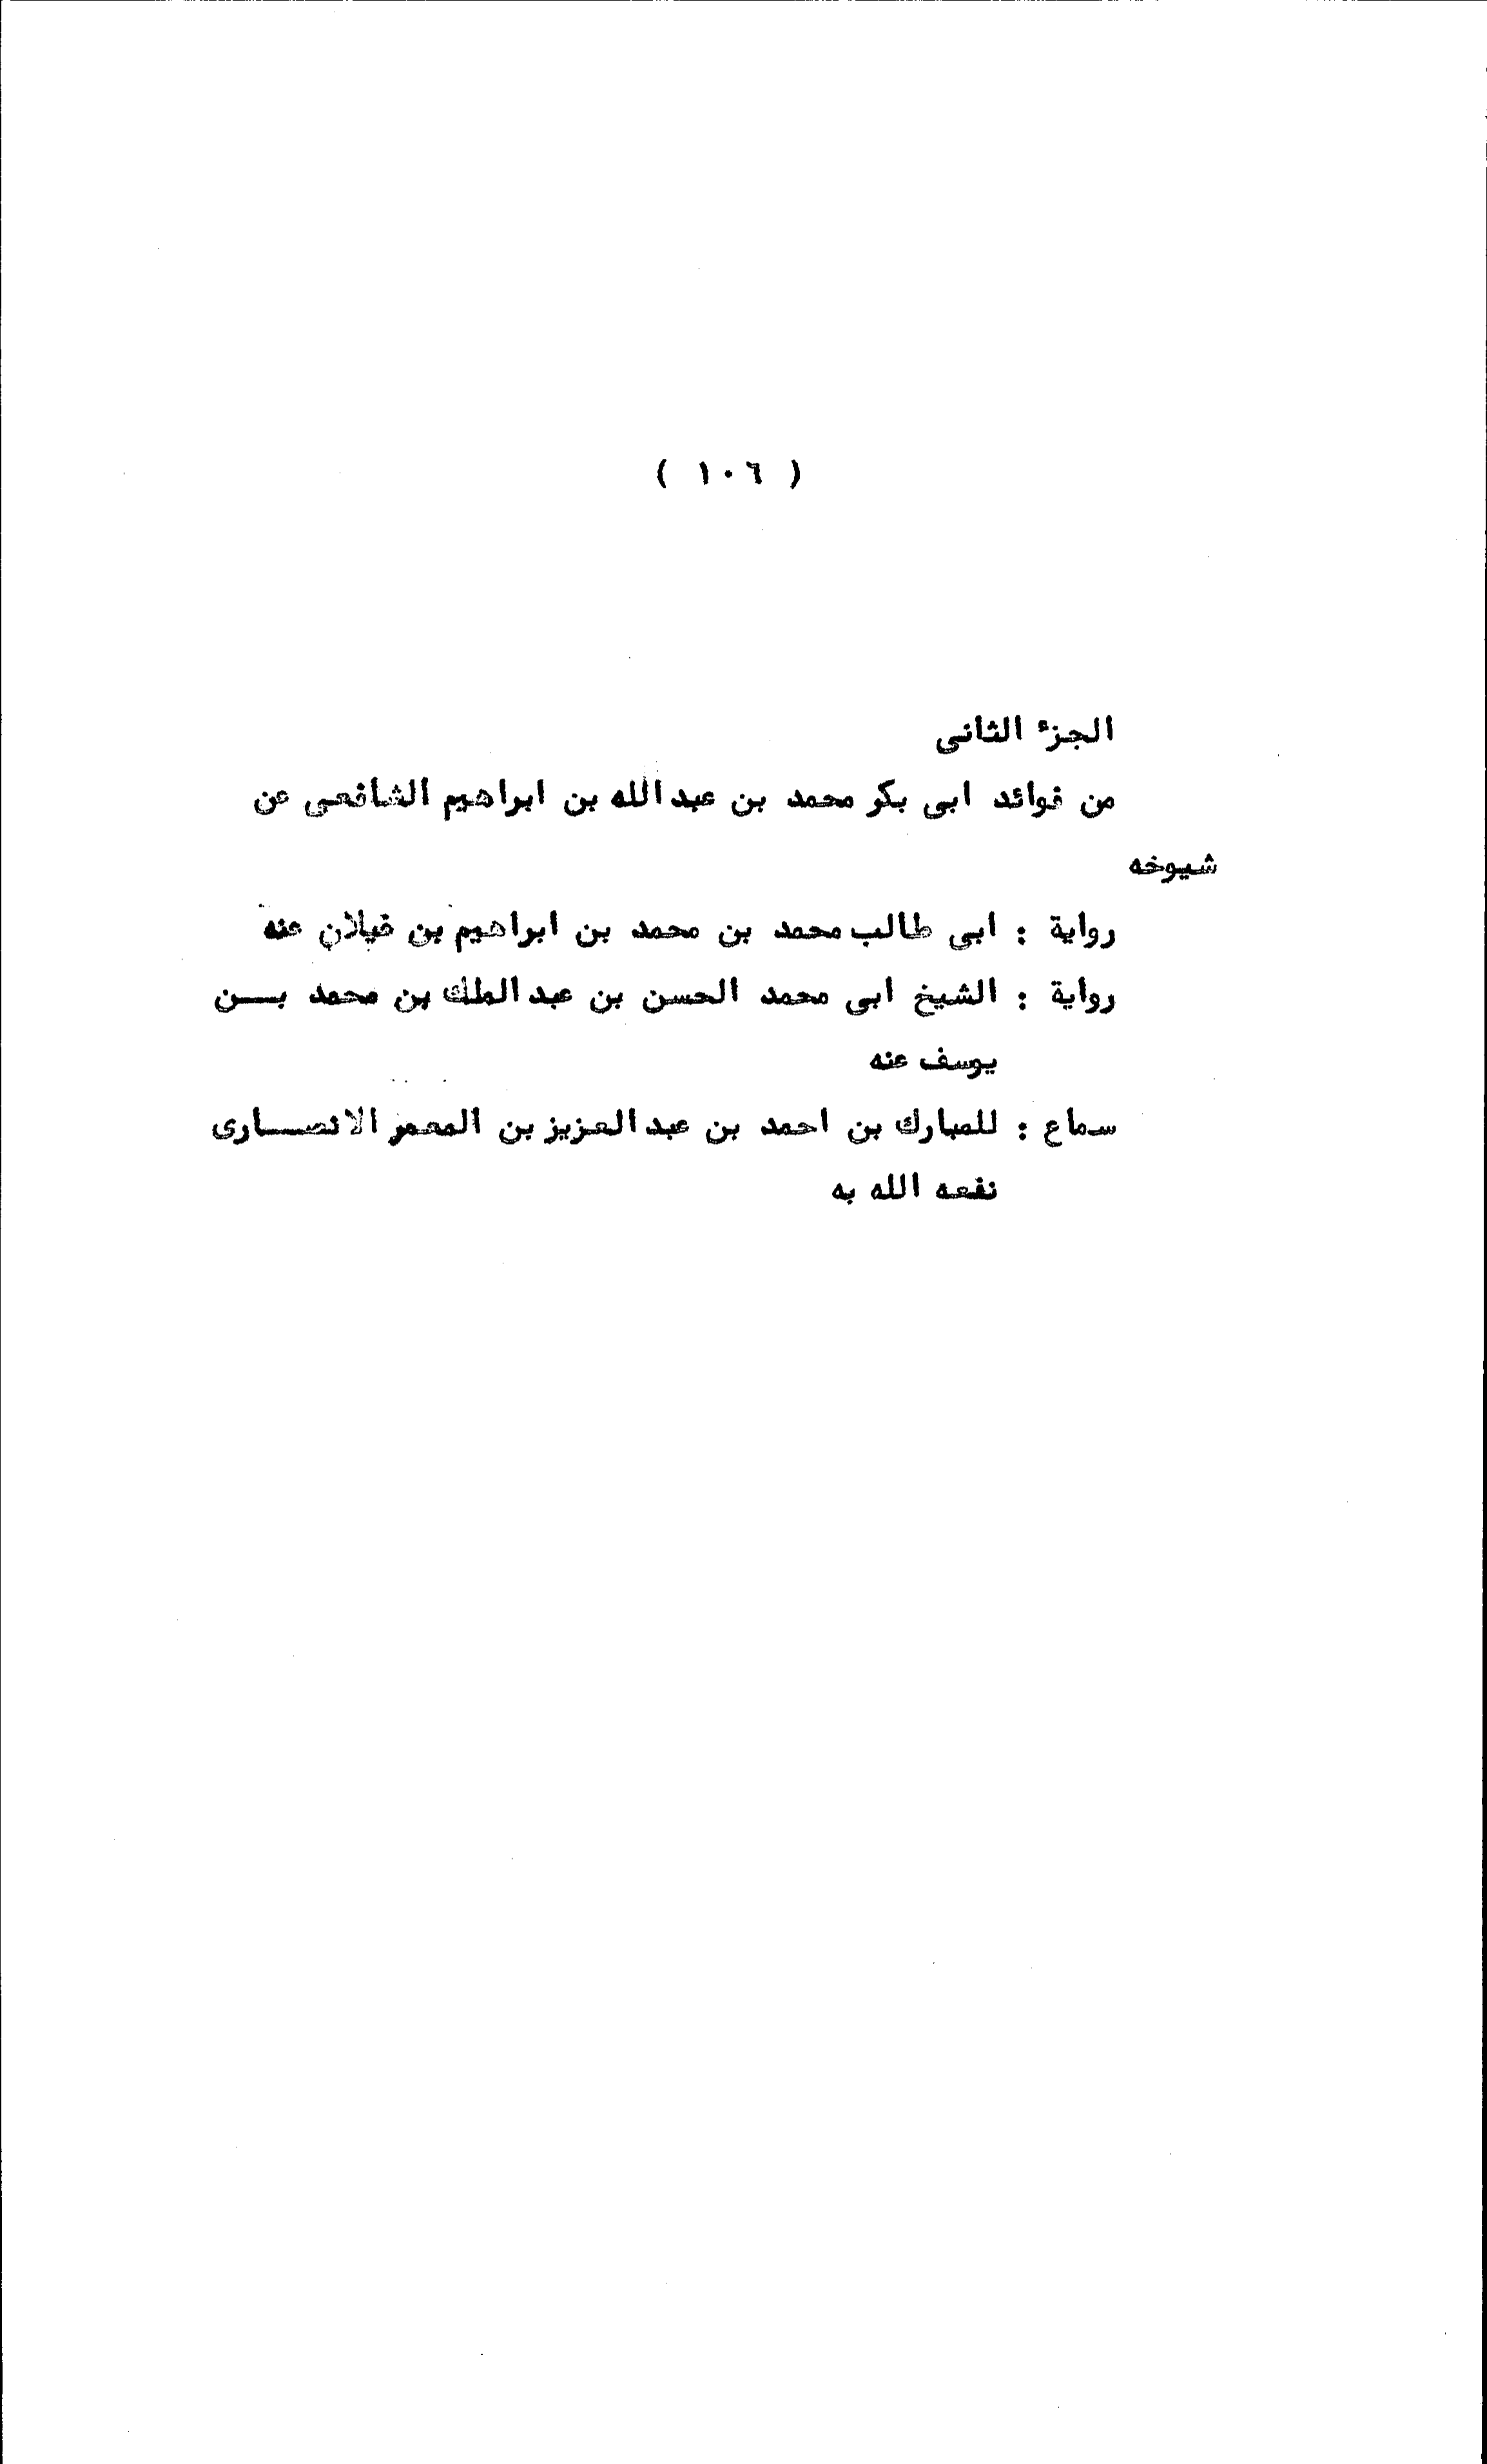 ( ١٠٦ )
الجزء الثانى
من فوائد ابى بكر محمد بن عبد الله بن ابراهيم الشافعى عن
شيوخه
رواية : ابى طالب محمد بن محمد بن ابراهيم بن غيلان عنه
رواية : الشيخ ابى محمد الحسن بن عبد الملك بن محمد بــن
يوسف عنه
سماع : للمبارك بن احمد بن عبد العزيز بن المعمر الانصــارى
نفعه الله به